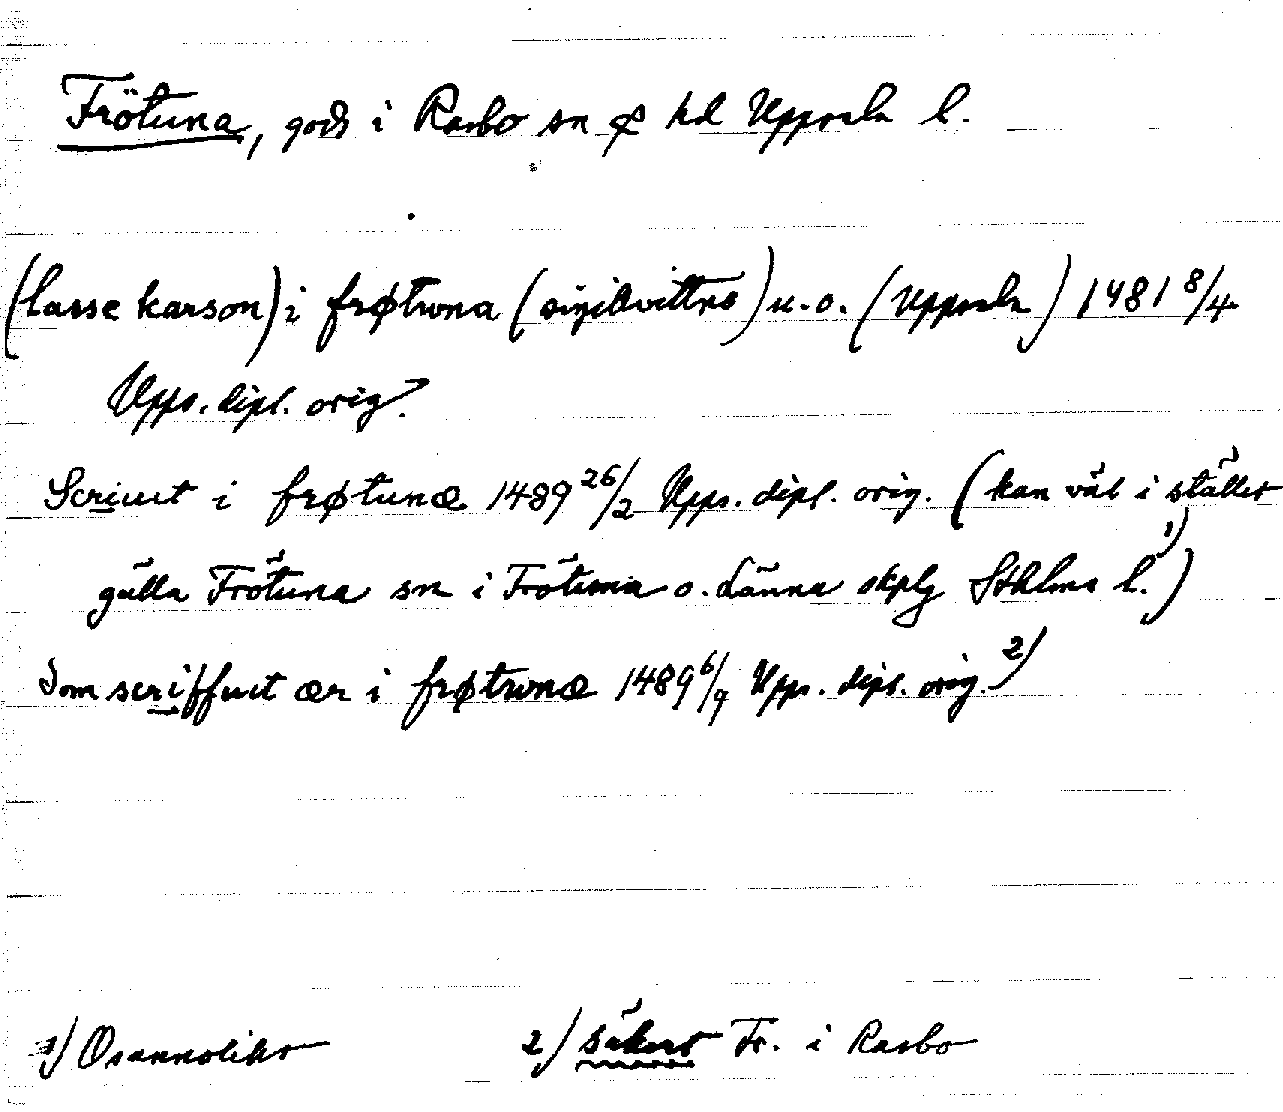 Frötuna, gods i Rasbo sn & hd Uppsala l.
(lasse karson) i frøtwna (sigillvittne) u. o. (Uppsala) 1481 8/4
Upps. dipl. orig.
Scriuit i frøtunæ 1489 26/2 Upps. dipl. orig. (kan väl i stället
gälla Frötuna sn i Frötuna o. Länna skplg Sthlms l.) 1)
Som scriffuit ær i frøtwnæ 1489 6/9 Upps. dipl. orig. 2)
1) Osannolikt
2) säkert Fr. i Rasbo